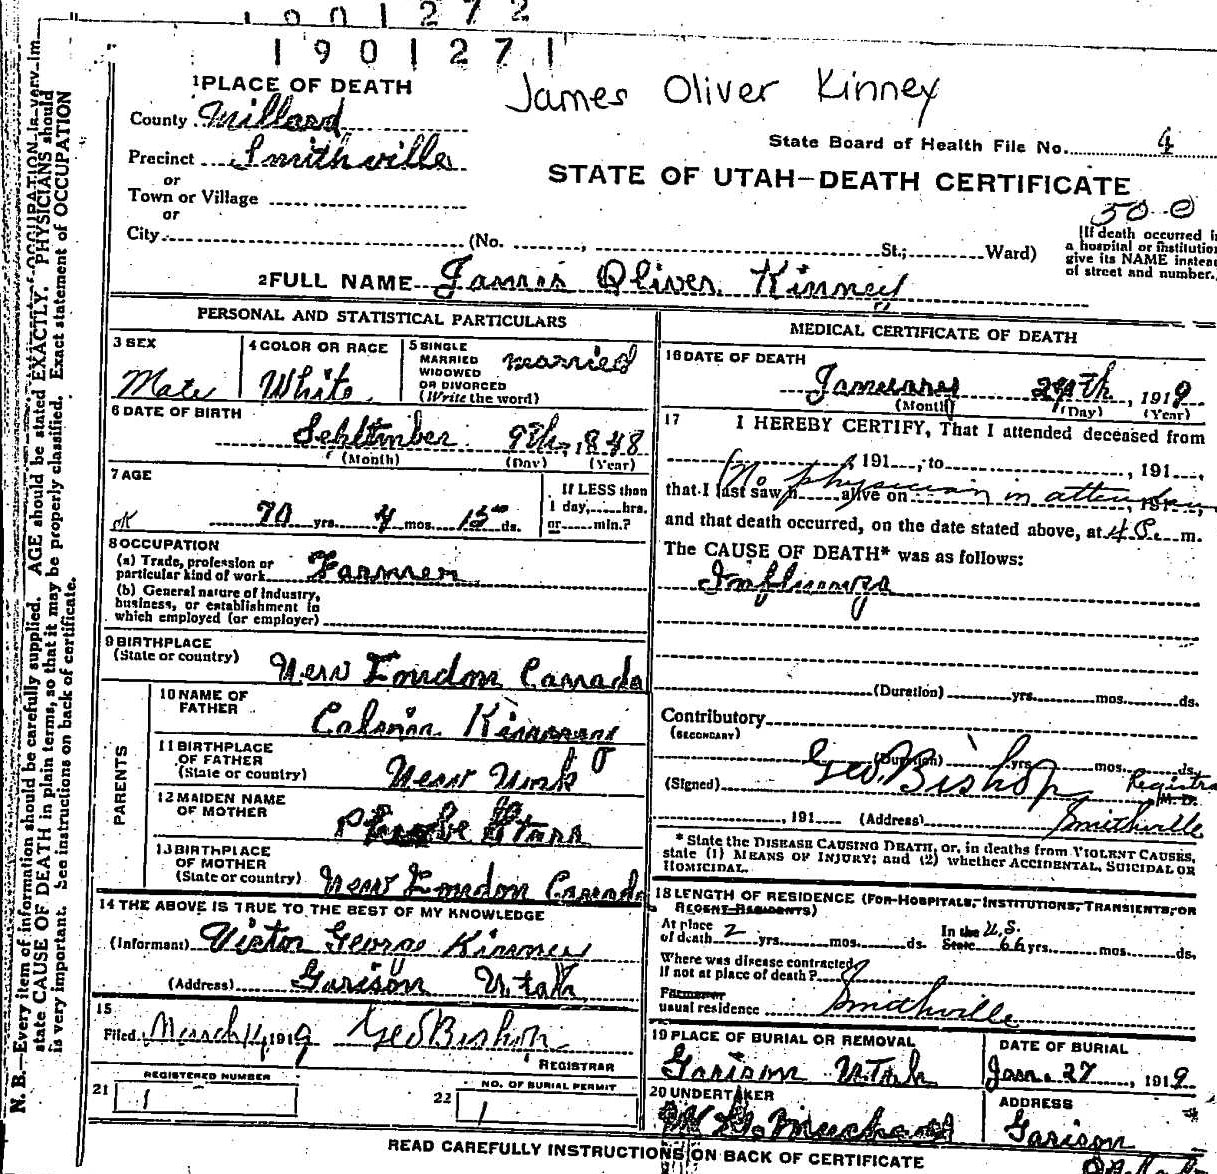 1901272
1901271
James Oliver Kinney
1 PLACE OF DEATH
County Millard
Precinct Smithville
or
Town or Village
or
City (No. St.; Ward)
State Board of Health File No. 4
STATE OF UTAH—DEATH CERTIFICATE
500
(If death occurred in
a hospital or institution
give its NAME instead
of street and number.
2 FULL NAME James Oliver Kinney
PERSONAL AND STATISTICAL PARTICULARS
3 SEX
Male
4 COLOR OR RACE
White
5 SINGLE
MARRIED
WIDOWED
OR DIVORCED
(Write the word)
married
6 DATE OF BIRTH
September 9th, 1848
(Month) (Day) (Year)
7 AGE
70 yrs. 4 mos. ds.
If LESS than
1 day, hrs.
or min.?
8 OCCUPATION
(a) Trade, profession or
particular kind of work Farmer
(b) General nature of industry,
business, or establishment in
which employed (or employer)
9 BIRTHPLACE
(State or country) New London Canada
PARENTS
10 NAME OF
FATHER
Kinney
11 BIRTHPLACE
OF FATHER
(State or country) New York
12 MAIDEN NAME
OF MOTHER Phoebe
13 BIRTHPLACE
OF MOTHER
(State or country) New London Canada
14 THE ABOVE IS TRUE TO THE BEST OF MY KNOWLEDGE
(Informant) Victor George Kinney
(Address) Garison Utah
15
Filed March 14, 1919 Geo Bishop
REGISTRAR
21 REGISTERED NUMBER
1
22 NO. OF BURIAL PERMIT
1
MEDICAL CERTIFICATE OF DEATH
16 DATE OF DEATH
January , 1919
(Month) (Day) (Year)
17 I HEREBY CERTIFY, That I attended deceased from
, 191 , to , 191 ,
No physician in attendance
that I last saw h alive on , 191 ,
and that death occurred, on the date stated above, at 4 P. m.
The CAUSE OF DEATH* was as follows:
Influenza
(Duration) yrs. mos. ds.
Contributory
(SECONDARY)
(Duration) yrs. mos. ds.
(Signed) Geo. Bishop Registrar
M. D.
, 191 (Address) Smithville
* State the DISEASE CAUSING DEATH, or, in deaths from VIOLENT CAUSES,
state (1) MEANS OF INJURY; and (2) whether ACCIDENTAL, SUICIDAL OR
HOMICIDAL.
18 LENGTH OF RESIDENCE (FOR HOSPITALS, INSTITUTIONS, TRANSIENTS, OR
RECENT RESIDENTS)
At place
of death 2 yrs. mos. ds. In the U.S.
State 66 yrs. mos. ds.
Where was disease contracted,
if not at place of death?
Former or
usual residence Smithville
19 PLACE OF BURIAL OR REMOVAL
Garison Utah
DATE OF BURIAL
Jan. 27, 1919
20 UNDERTAKER
ADDRESS
Garison
READ CAREFULLY INSTRUCTIONS ON BACK OF CERTIFICATE
N. B.—Every item of information should be carefully supplied. AGE should be stated EXACTLY. PHYSICIANS should
state CAUSE OF DEATH in plain terms, so that it may be properly classified. Exact statement of OCCUPATION
is very important. See instructions on back of certificate.